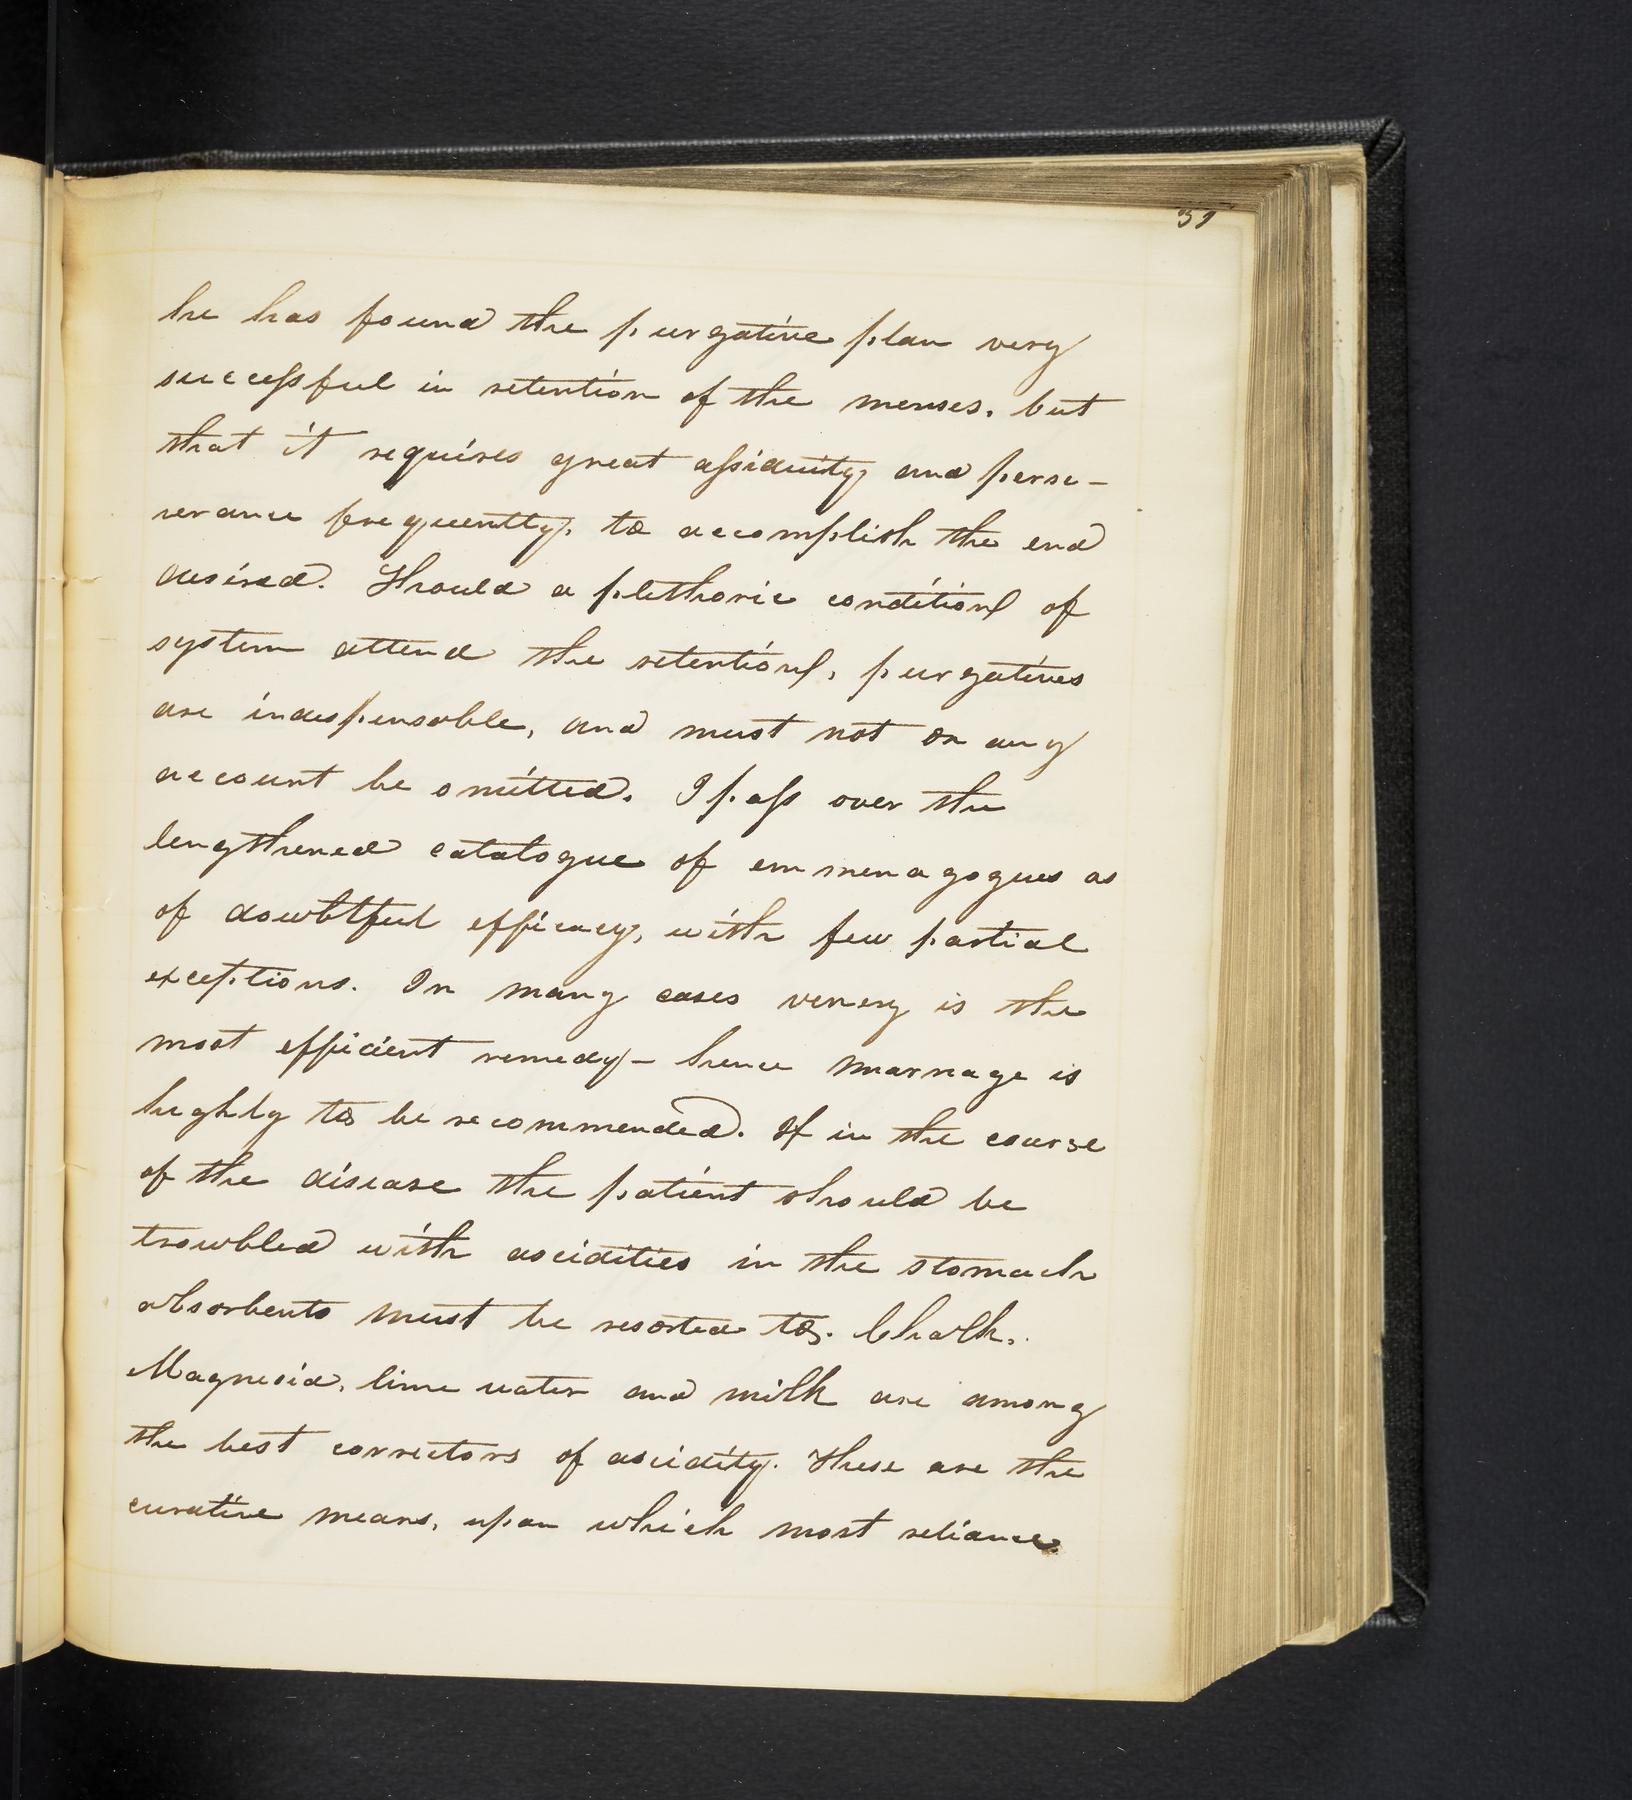 39
he has found the purgative plan very
successful in retention of the menses, but
that it requires great assiduity and perse-
verance frequently, to accomplish the end
desired. Should a plethoric condition of
system attend the retention, purgatives
are indespensable, and must not on any
account be omitted. I pass over the
lengthened catalogue of emmenagogues as
of doubtful efficacy, with few partial
exceptions. In many cases venery is the
most efficient remedy - hence marriage is
highly to be recommended. If in the course
of the disease the patient should be
troubled with acidities in the stomach
absorbents must be resorted to. Chalk,
Magnesia, lime water and milk are among
the best correctors of acidity. These are the
curative means, upon which most reliance